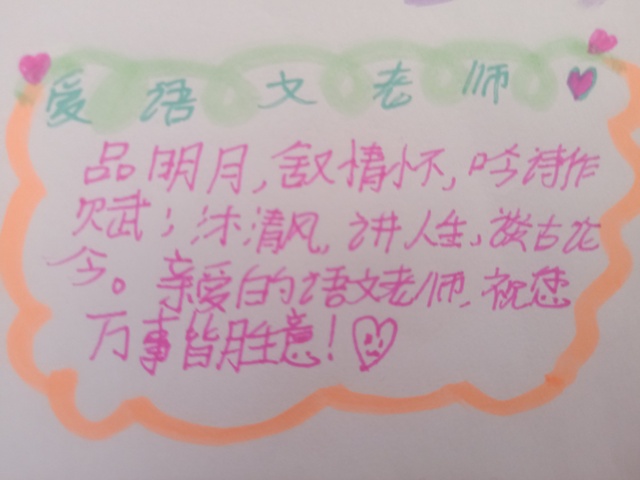 爱语文老师
品明月,叙情怀,吟诗作
欠赋;沐清风,讲人生,谈古论
今。亲爱的语文老师,祝您
万事皆胜意!